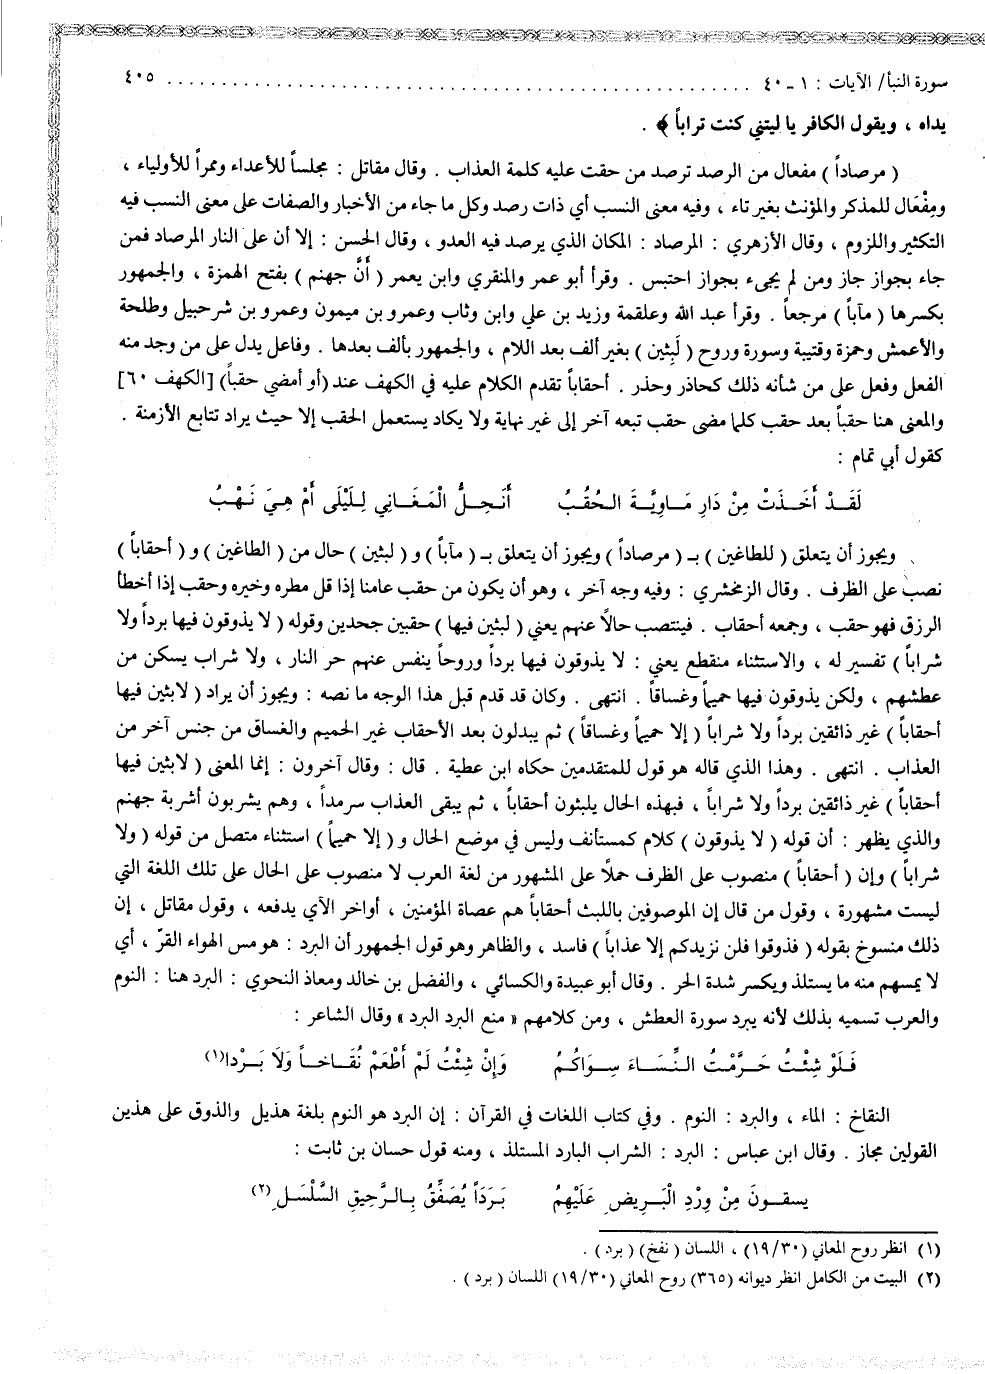 سورة النبأ/ الآيات : ١ ـ ٤٠ . . . . . . . . . . . . . . . . . . . . . . . . . . . . . . . . . . . . . . . . . . . . . . . ٤٠٥
يداه ، ويقول الكافر يا ليتني كنت تراباً ﴾ .
( مرصاداً ) مفعال من الرصد ترصد من حقت عليه كلمة العذاب . وقال مقاتل : مجلساً للأعداء وممراً للأولياء ،
ومِفْعَال للمذكر والمؤنث بغير تاء ، وفيه معنى النسب أي ذات رصد وكل ما جاء من الأخبار والصفات على معنى النسب فيه
التكثير واللزوم ، وقال الأزهري : المرصاد : المكان الذي يرصد فيه العدو ، وقال الحسن : إلا أن على النار المرصاد فمن
جاء بجواز جاز ومن لم يجىء بجواز احتبس . وقرأ أبو عمر والمنقري وابن يعمر ( أَنَّ جهنم ) بفتح الهمزة ، والجمهور
بكسرها ( مآباً ) مرجعاً . وقرأ عبد الله وعلقمة وزيد بن علي وابن وثاب وعمرو بن ميمون وعمرو بن شرحبيل وطلحة
والأعمش وحمزة وقتيبة وسورة وروح ( لَبِثين ) بغير ألف بعد اللام ، والجمهور بألف بعدها . وفاعل يدل على من وجد منه
الفعل وفعل على من شأنه ذلك كحاذر وحذر . أحقاباً تقدم الكلام عليه في الكهف عند (أو أمضي حقباً) [الكهف ٦٠]
والمعنى هنا حقباً بعد حقب كلما مضى حقب تبعه آخر إلى غير نهاية ولا يكاد يستعمل الحقب إلا حيث يراد تتابع الأزمنة .
كقول أبي تمام :
لَقَدْ أَخَذَتْ مِنْ دَارِ مَاوِيَّةَ الحُقْبُ أَنَحِلُّ الْمَغَانِي لِلَيْلَى أَمْ هِيَ نَهْبُ
ويجوز أن يتعلق ( للطاغين ) بـ ( مرصاداً ) ويجوز أن يتعلق بـ ( مآباً ) و ( لبثين ) حال من ( الطاغين ) و ( أحقاباً )
نصب على الظرف . وقال الزمخشري : وفيه وجه آخر ، وهو أن يكون من حقب عامنا إذا قل مطره وخيره وحقب إذا أخطأ
الرزق فهو حقب ، وجمعه أحقاب . فينتصب حالاً عنهم يعني ( لبثين فيها ) حقبين جحدين وقوله ( لا يذوقون فيها برداً ولا
شراباً ) تفسير له ، والاستثناء منقطع يعني : لا يذوقون فيها برداً وروحاً ينفس عنهم حر النار ، ولا شراب يسكن من
عطشهم ، ولكن يذوقون فيها حميماً وغساقاً . انتهى . وكان قد قدم قبل هذا الوجه ما نصه : ويجوز أن يراد ( لابثين فيها
أحقاباً ) غير ذائقين برداً ولا شراباً ( إلا حميماً وغساقاً ) ثم يبدلون بعد الأحقاب غير الحميم والغساق من جنس آخر من
العذاب . انتهى . وهذا الذي قاله هو قول للمتقدمين حكاه ابن عطية . قال : وقال آخرون : إنما المعنى ( لابثين فيها
أحقاباً ) غير ذائقين برداً ولا شراباً ، فبهذه الحال يلبثون أحقاباً ، ثم يبقى العذاب سرمداً ، وهم يشربون أشربة جهنم
والذي يظهر : أن قوله ( لا يذوقون ) كلام كمستأنف وليس في موضع الحال و ( إلا حميماً ) استثناء متصل من قوله ( ولا
شراباً ) وإن ( أحقاباً ) منصوب على الظرف حملاً على المشهور من لغة العرب لا منصوب على الحال على تلك اللغة التي
ليست مشهورة ، وقول من قال إن الموصوفين باللبث أحقاباً هم عصاة المؤمنين ، أواخر الآي يدفعه ، وقول مقاتل ، إن
ذلك منسوخ بقوله ( فذوقوا فلن نزيدكم إلا عذاباً ) فاسد ، والظاهر وهو قول الجمهور أن البرد : هو مس الهواء القرّ ، أي
لا يمسهم منه ما يستلذ ويكسر شدة الحر . وقال أبو عبيدة والكسائي ، والفضل بن خالد ومعاذ النحوي : البرد هنا : النوم
والعرب تسميه بذلك لأنه يبرد سورة العطش ، ومن كلامهم « منع البرد البرد » وقال الشاعر :
فَلَوْ شِئْتُ حَرَّمْتُ النِّسَاءَ سِوَاكُمُ وَإِنْ شِئْتُ لَمْ أَطْعَمْ نُقَاخاً وَلَا بَرْدا(١)
النقاخ : الماء ، والبرد : النوم . وفي كتاب اللغات في القرآن : إن البرد هو النوم بلغة هذيل والذوق على هذين
القولين مجاز . وقال ابن عباس : البرد : الشراب البارد المستلذ ، ومنه قول حسان بن ثابت :
يسقونَ مِنْ وِرْدِ الْبَرِيضِ عَلَيْهِمُ بَرَدَاً يُصَفِّقُ بِالرَّحِيقِ السَّلْسَلِ (٢)
(١) انظر روح المعاني (١٩/٣٠) ، اللسان ( نفخ) ( برد) .
(٢) البيت من الكامل انظر ديوانه (٣٦٥) روح المعاني (١٩/٣٠) اللسان ( برد ) .